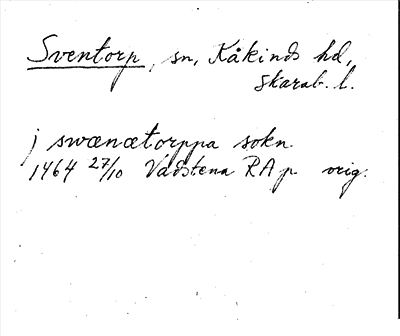 Sventorp, sn, Kåkinds hd,
Skarab. l.
j swænætorppa sokn.
1464 27/10 Vadstena RA p orig.